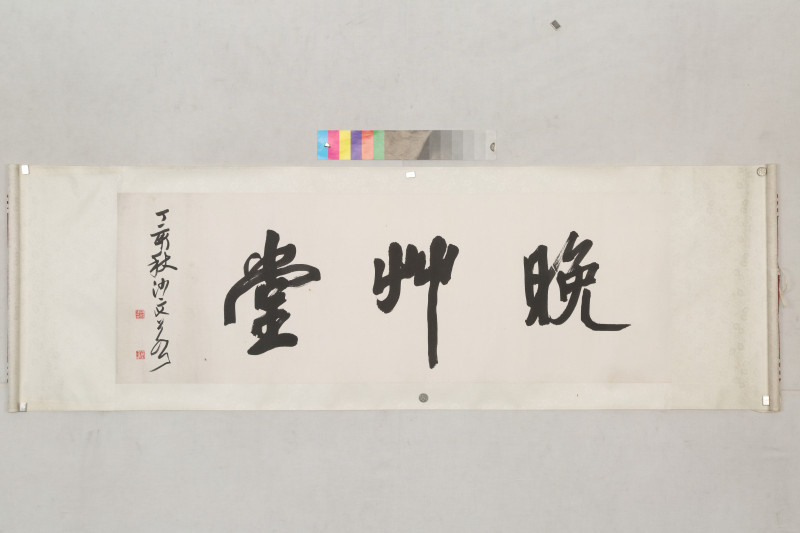 晚艸堂
丁亥秋沙文若